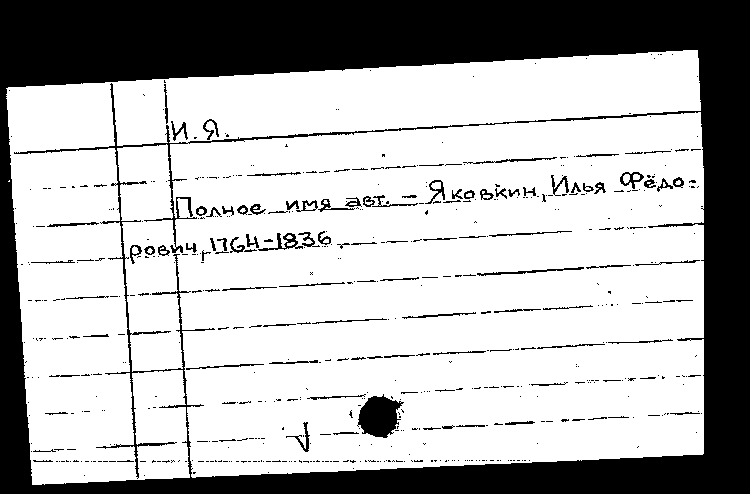 И. Я.
Полное имя авт. – Яковкин, Илья Фёдо-
рович, 1764-1836